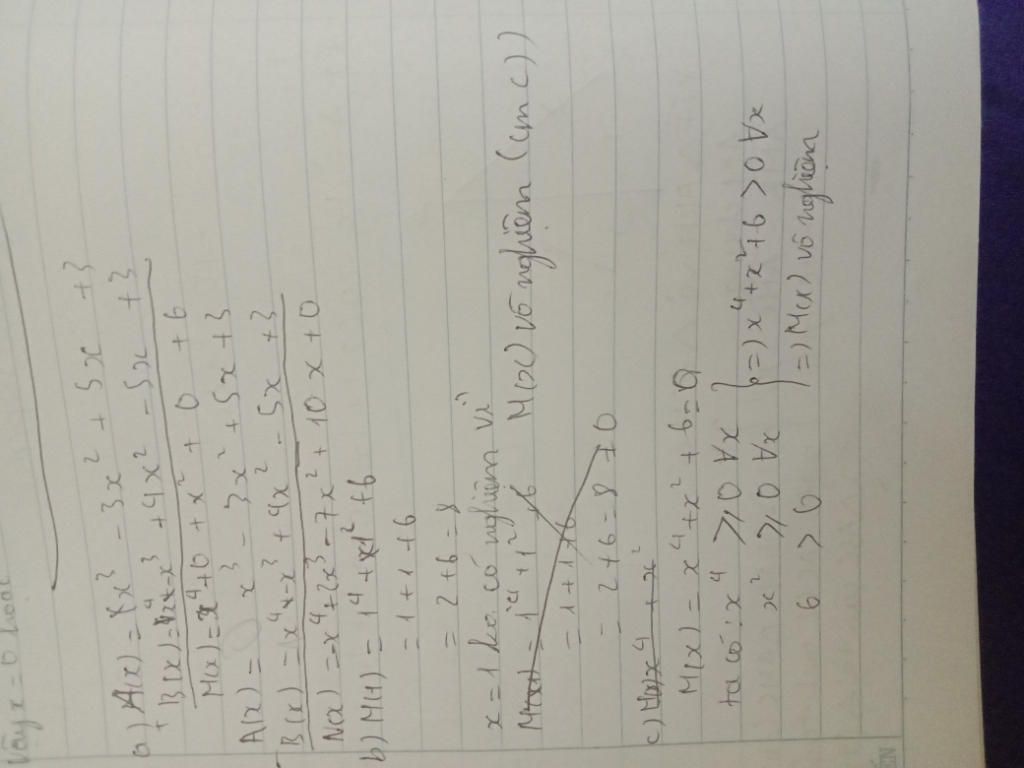 Vậy x = 0 hoặc
a) A(x) = x³ - 3x² + 5x + 3
+ B(x) = x⁴ - x³ + 4x² - 5x + 3
M(x) = x⁴ + 0 + x² + 0 + 6
A(x) = x³ - 3x² + 5x + 3
B(x) = x⁴ - x³ + 4x² - 5x + 3
N(x) = -x⁴ + 2x³ - 7x² + 10x + 0
b) M(1) = 1⁴ + 1² + 6
= 1 + 1 + 6
= 2 + 6 = 8
x = 1 ko có nghiệm vì M(x) vô nghiệm (cm c))
M(x) = 1⁴ + 1² + 6
= 1 + 1 + 6
= 2 + 6 = 8 ≠ 0
c) M(x) x⁴ + x²
M(x) = x⁴ + x² + 6 = 0
ta có: x⁴ ⩾ 0 ∀x
x² ⩾ 0 ∀x } => x⁴ + x² + 6 > 0 ∀x
6 > 0 => M(x) vô nghiệm